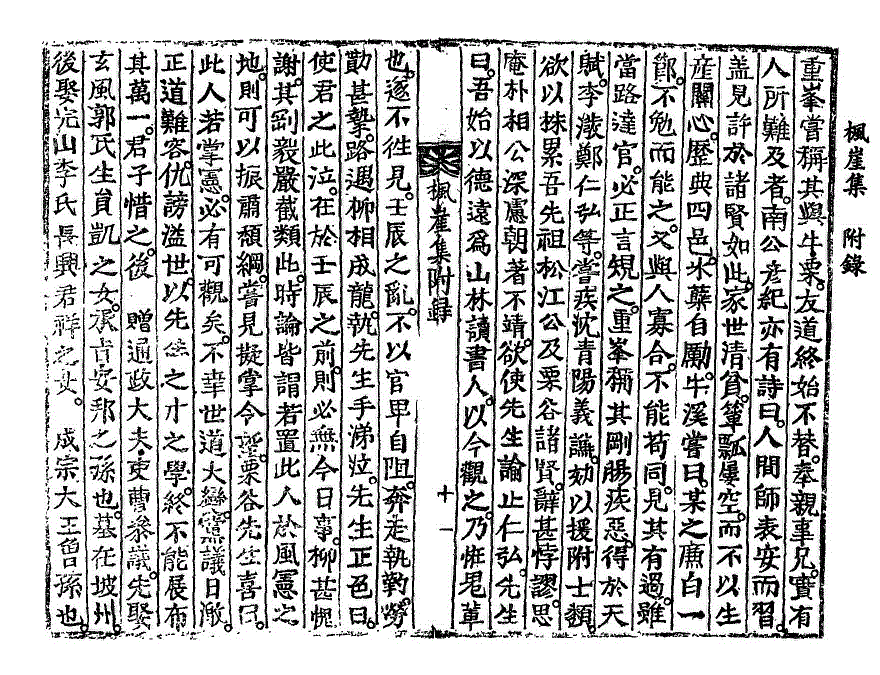 楓崖集 附錄
重峯嘗稱其與牛栗友道終始不替奉親事兄實有
人所難及者南公彦紀亦有詩曰人間師表安而習
盖見許於諸賢如此家世清貧簞瓢屢空而不以生
産關心歷典四邑氷蘗自勵牛溪嘗曰某之廉白一
節不勉而能之又與人寡合不能苟同見其有過雖
當路達官必正言規之重峯稱其剛腸疾惡得於天
賦李潑鄭仁弘等嘗疾沈靑陽義謙劾以援附士類
欲以株累吾先祖松江公及栗谷諸賢辭甚悖謬思
庵朴相公深慮朝著不靖欲使先生論止仁弘先生
曰吾始以德遠爲山林讀書人以今觀之乃恠鬼輩
楓崖集附錄
十一
也遂不徃見壬辰之亂不以官卑自阻奔走執靮勞
勩甚摯路遇柳相成龍執先生手涕泣先生正色曰
使君之此泣在於壬辰之前則必無今日事柳甚愧
謝其剛毅嚴截類此時論皆謂若置此人於風憲之
地則可以振肅頹綱嘗見擬掌令望栗谷先生喜曰
此人若掌憲必有可觀矣不幸世道大變黨議日激
正道難容仇謗溢世以先生之才之學終不能展布
其萬一君子惜之後 贈通政大夫吏曹參議先娶
玄風郭氏生員凱之女承旨安邦之孫也墓在坡州
後娶完山李氏長興君祥之女 成宗大王曾孫也